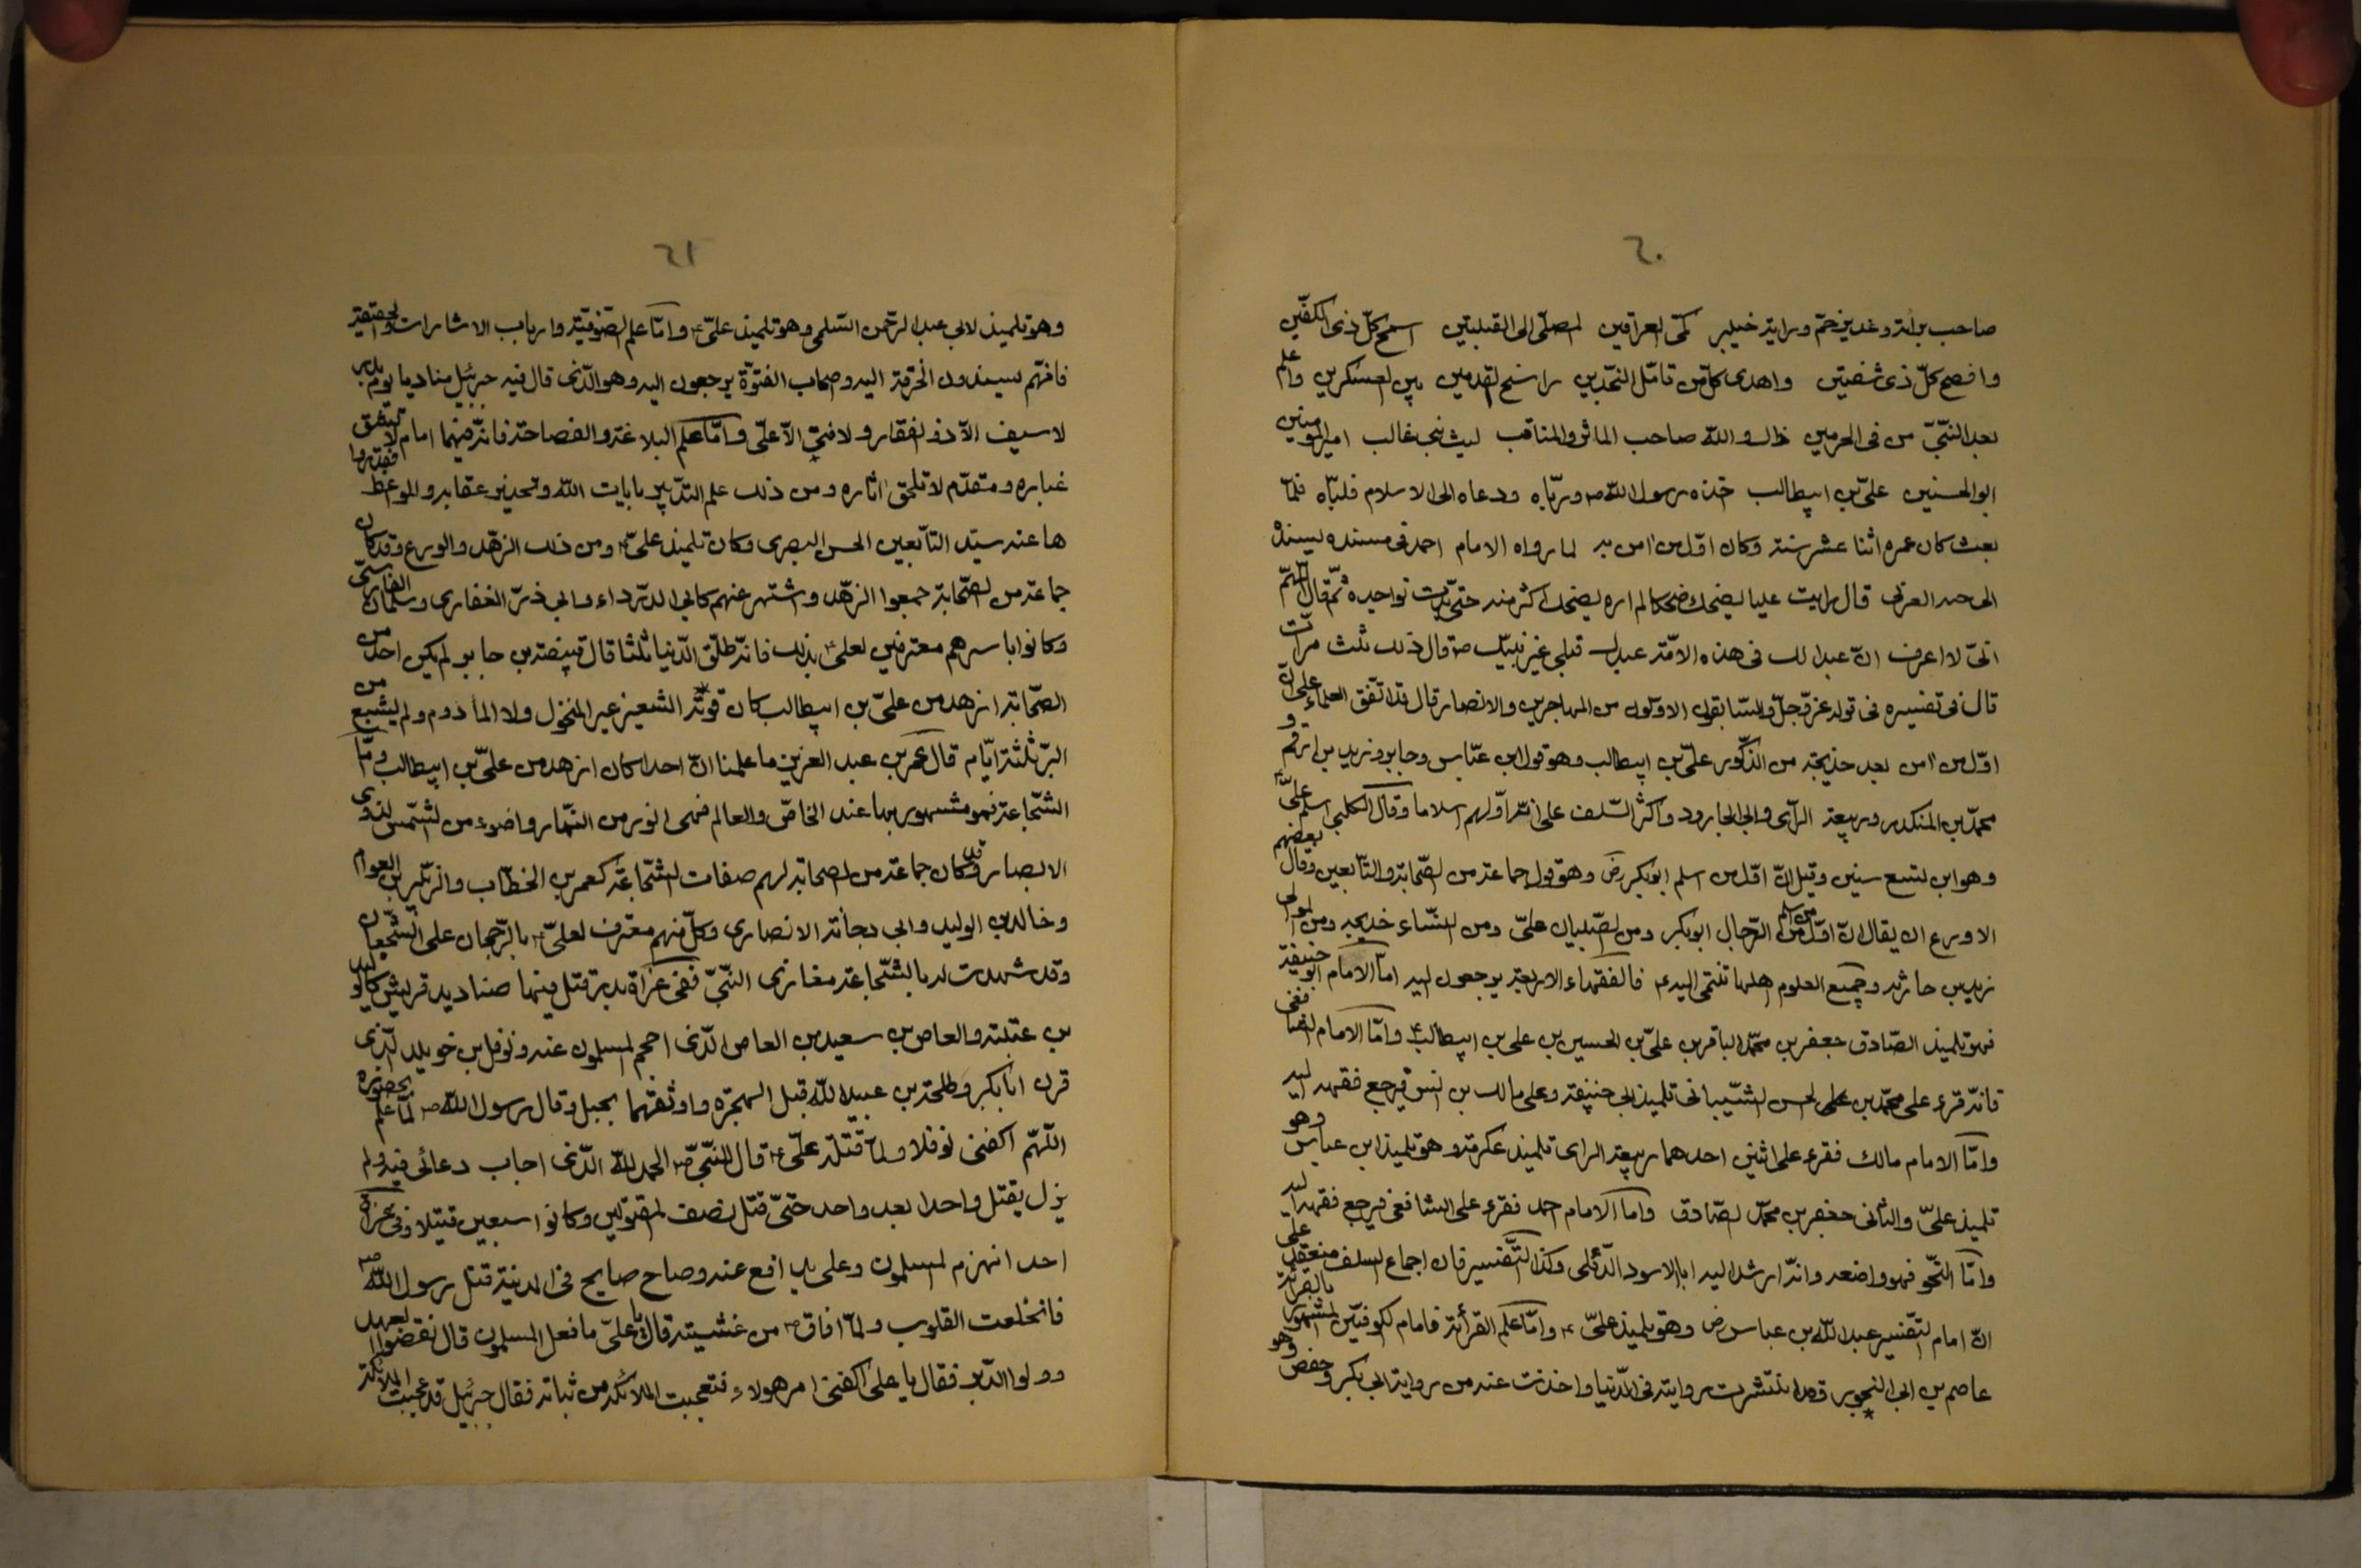 ٦٠
صاحب براءة وغدير خم وراية خيبر كمى العراقين المصلى الى القبلتين اسمح كل ذى الكفّين
وافصح كلّ ذى شفتين واهدى كل من تامّل النجدين راسخ القدمين بين العسكرين واعلم
بعد النبىّ من فى الحرمين ذاك والله صاحب الماثر والمناقب ليث بنى غالب امير المومنين
ابو الحسنين علىّ بن ابيطالب اخذه رسول الله ص وربّاه ودعاه الى الاسلام فلبّاه فلمّا
بعث كان عمره اثنا عشر سنة وكان اوّل من امن به لما رواه الامام احمد فى مسنده يسنده
الى حبه العرنى قال رايت عليا يضحك ضحكا لم اره يضحك اكثر منه حتّى بدت نواجيده ثمّ قال اللهمّ
انىّ لا اعرف انّ عبدا لك فى هذه الامّة عبدك قبلى غير نبيّك ص قال ذلك ثلث مرات
قال فى تفسيره فى قوله عزّ وجلّ والسّابقون الاوّلون من المهاجرين والانصار قال قد اتّفق العلماء على انّ
اوّل من امن بعد خذيجة من الذّكور علىّ بن ابيطالب وهو قول ابن عبّاس وجابر وزيد بن ارقم و
محمّد بن المنكدر وربيعة الرّأى وابى الجارود واكثر السّلف على انّه اوّلهم اسلاما وقال الكلبى اسلم علىّ ع
وهو ابن تسع سنين وقيل انّ اوّل من اسلم ابوبكر رض وهو قول جماعة من الصّحابة والتّابعين وقال بعضهم
الاورع ان يقال انّ اوّل من اسلم من الرّجال ابوبكر ومن الصّبيان علىّ ومن النّساء خديجه ومن الموالى
زيد بن حارثه وجميع العلوم كلها تنتمى اليه ع فالفقهاء الاربعة يرجعون اليه امّا الامام ابو حنيفة
فهو تلميذ الصّادق جعفر بن محمّد الباقر بن علىّ بن الحسين بن على بن ابيطالب ع وامّا الامام الشافعى
فانّه قرء على محمّد بن على الحسن الشّيبانى تلميذ ابى حنيفة وعلى مالك بن انس فيرجع فقهه اليه
وامّا الامام مالك فقرء على اثنين احدهما ربيعة الراى تلميذ عكرمة وهو تلميذ ابن عباس وهو
تلميذ علىّ والثانى جعفر بن محمّد الصّادق وامّا الامام احمد فقرء على الشافعى فيرجع فقهه اليه
وامّا النّحو فهو واضعه وانّه ارشد اليه ابا الاسود الدّئلى وكذا التّفسير فان اجماع السلف منعقد على
انّ امام التّفسير عبد الله بن عباس رض وهو تلميذ علىّ ع وامّا علم القرأئة فامام الكوفيّين المشهور بالقرائة
عاصم بن ابى النجوير قد انتشرت روايته فى الدّنيا واخذت عنه من رواية ابى بكر وحفص وهو
٦١
وهو تلميذ لابى عبد الرّحمن السّلمى وهو تلميذ علىّ ع وامّا علم الصّوفيّة وارباب الاشارات والحقيقة
فانّهم يسندون الخرقة اليه واصحاب الفتوّة يرجعون اليه وهو الّذى قال فيه جبرئيل مناديا يوم بدر
لا سيف الاّ ذو الفقار ولا فتى الاّ علىّ وامّا علم البلاغة والفصاحة فانّه فيهما امام لا يشق
غباره ومتقدّم لا تلحق اثاره ومن ذلك علم التذكير بايات الله وتحذير عقابه والمواعظ فقد روا
ها عنه سيّد التّابعين الحسن البصرى وكان تلميذ علىّ ع ومن ذلك الزهد والورع وقد كان
جماعة من الصّحابة جمعوا الزّهد واشتهر عنهم كابى الدّرداء وابى ذرّ الغفارى وسلمان الفارسىّ
وكانوا باسرهم معترفين لعلى ع بذلك فانّه طلّق الدّنيا ثلثا قال قبيضة بن جابر لم يكن احد من
الصّحابة ازهد من علىّ بن ابيطالب كان قوته الشعير غير المنخول ولا المأدوم ولم يشبع من
البرّ ثلثة ايّام قال عمر بن عبد العزيز ما علمنا انّ احدا كان ازهد من علىّ بن ابيطالب وامّا
الشّجاعة فهو مشهور بها عند الخاصّ والعالم فهى انور من النّهار واضوء من الشّمس لذوى
الابصار وقد كان جماعة من الصحابة لهم صفات الشّجاعة كعمر بن الخطّاب والزّبير بن العوام
وخالد بن الوليد وابى دجانة الانصارى وكلّ منهم معترف لعلىّ ع بالرّجحان على الشّجعان
وقد شهدت له بالشّجاعة مغازى النبىّ ففى غزاة بدر قتل فيها صناديد قريش كالوليد
بن عتبة والعاص بن سعيد بن العاص الّذى احجم المسلمون عنه ونوفل بن خويلد الّذى
قرن ابابكر وطلحة بن عبيد الله قبل الهجرة واوثقهما بحبل وقال رسول الله ص لمّا علم بحضوره
اللّهمّ اكفنى نوفلا ولمّا قتله علىّ ع قال النّبىّ ص الحمد لله الّذى اجاب دعائى فيه ولم
يزل يقتل واحدا بعد واحد حتّى قتل نصف المقتولين وكانوا سبعين قتيلا وفى غزاة
احد انهزم المسلمون وعلى يدافع عنه وصاح صايح فى المدينة قتل رسول الله ص
فانخلعت القلوب ولمّا افاق ص من غشيته قال يا علىّ ما فعل المسلمون قال نقضوا العهد
وولوا الدّبر فقال يا على اكفنى امر هولاء فتعجبت الملائكه من ثباته فقال جبرئيل قد عجبت الملائكة